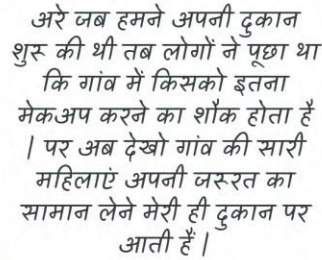 अरे जब हमने अपनी दुकान
शुरू की थी तब लोगों ने पूछा था
कि गांव में किसको इतना
मेकअप करने का शौक होता है
| पर अब देखो गांव की सारी
महिलाएं अपनी जरूरत का
सामान लेने मेरी ही दुकान पर
आती हैं |